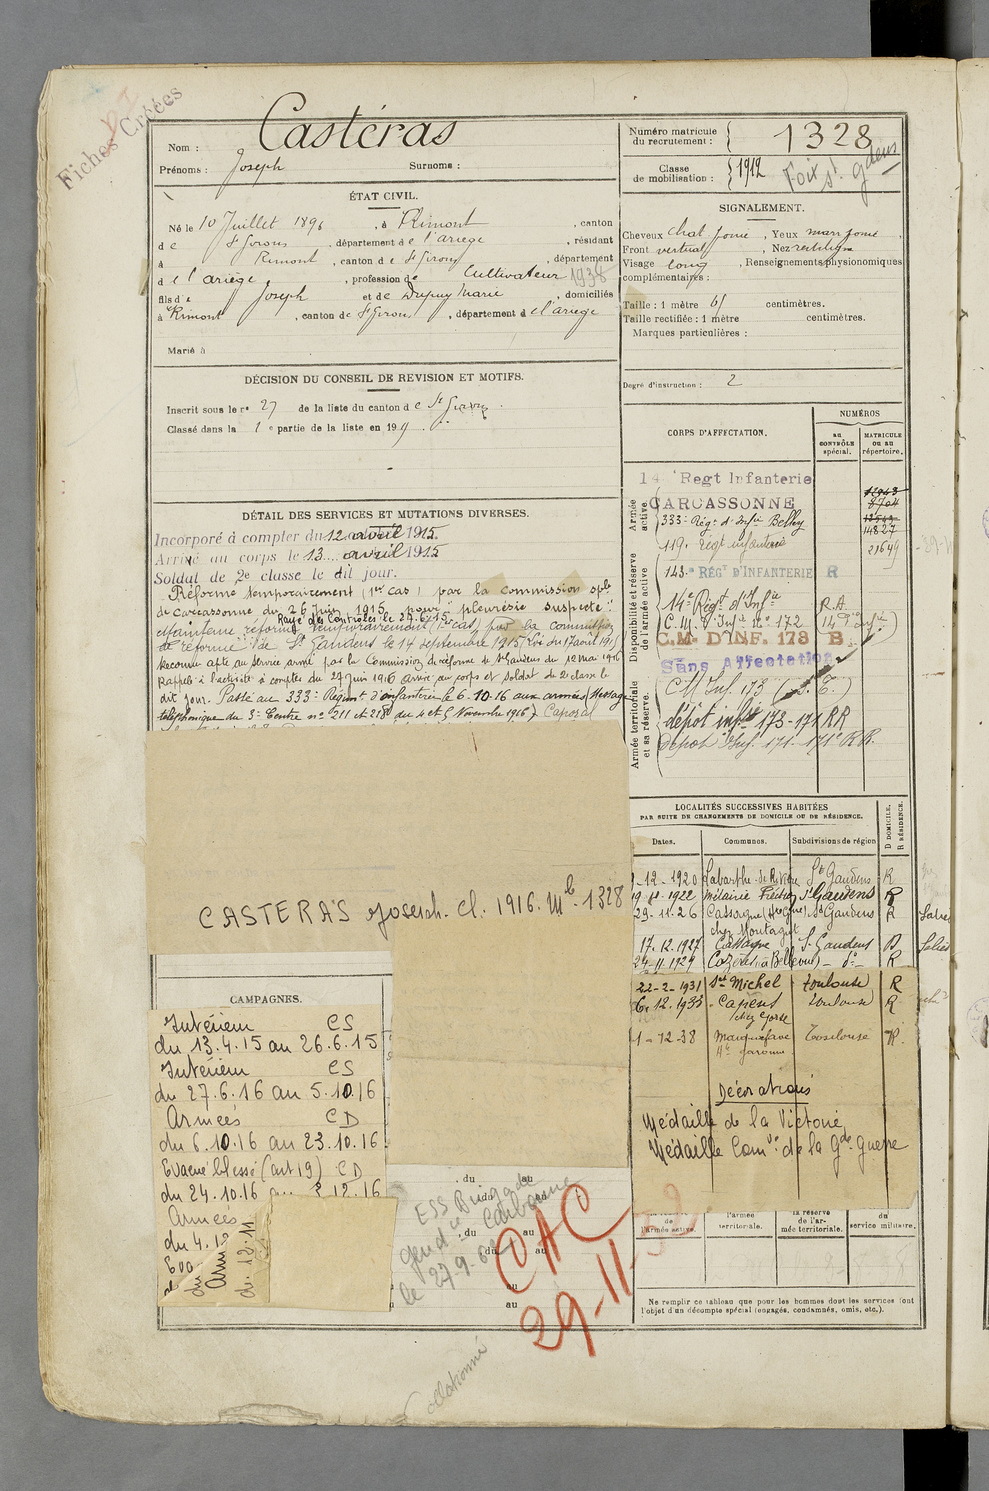 Fiches Créées
Nom : Castéras
Prénoms : Joseph Surnoms :
Numéro matricule du recrutement : 1328
Classe de mobilisation : 1912
Foix St gdens
ÉTAT CIVIL.
Né le 10 Juillet 1896, à Rimont, canton
de St Girons, département de l'ariège, résidant
à Rimont, canton de St Girons, département
de l'ariège, profession de Cultivateur 1938
fils de Joseph et de Dupuy Marie, domiciliés
à Rimont, canton de St Girons, département de l'ariège
Marié à
SIGNALEMENT.
Cheveux chat foncé, Yeux marr foncé,
Front vertical, Nez rectiligne
Visage long, Renseignements physionomiques
complémentaires :
Taille : 1 mètre 61 centimètres.
Taille rectifiée : 1 mètre centimètres.
Marques particulières :
Degré d'instruction : 2
DÉCISION DU CONSEIL DE REVISION ET MOTIFS.
Inscrit sous le n° 27 de la liste du canton de St Girons.
Classé dans la 1e partie de la liste en 191
CORPS D'AFFECTATION.
NUMÉROS
au CONTRÔLE spécial.
MATRICULE ou au répertoire.
Armée active.
14 Regt Infanterie
CARCASSONNE
333e Régt d'Infie Belley
119e Régt infanterie
8704
14827
21649
Disponibilité et réserve de l'armée active
143e REGt D'INFANTERIE R
14e Régt d'Infie R.A.
C.M. d'Inf. No 172 (14e d'Infie)
C.M. D'INF. 173 B.
Sans Affectation
Armée territoriale et sa réserve.
CM Inf. 173 (S.T.)
dépôt infie 173-171 RR
dépôt Inf. 171-171e RR.
DÉTAIL DES SERVICES ET MUTATIONS DIVERSES.
Incorporé à compter du 12 avril 1915.
Arrivé au corps le 13 avril 1915
Soldat de 2e classe le dit jour.
Réformé temporairement (1er cas) par la commission sple
de Carcassonne du 26 Juin 1915 pour "pleurésie suspecte".
Rayé des contrôles le 27.6.15
Maintenu réformé temporairement (1er cas) par la commission
de réforme de St Gaudens le 14 septembre 1915 (Loi du 17 août 1915)
Reconnu apte au service armé par la Commission de réforme de St Gaudens du 12 mai 1916
Rappelé à l'activité à compter du 27 juin 1916 arrivé au corps et soldat de 2e classe le
dit jour. Passé au 333e Régiment d'infanterie le 6-10-16 aux armées (Message
téléphonique du 3e Centre nos 211 et 218 du 4 et 5 Novembre 1916). Caporal
CASTERAS Joseph. Cl. 1916. Mle 1328
LOCALITÉS SUCCESSIVES HABITÉES
PAR SUITE DE CHANGEMENTS DE DOMICILE OU DE RÉSIDENCE.
Dates. Communes. Subdivisions de région D DOMICILE. R RÉSIDENCE.
-12-1920 Labarthe-de-Rivière St Gaudens R
19-11-1922 métairie St Gaudens R
29-11-26 Cassagne (Hte Gne) St Gaudens R
chez Montagut
17.12.1927 Cassagne St Gaudens D
24-11-1929 Cazères (à Bellevue) do R
22-2-1931 St Michel Toulouse R
6.12.1935 Capens Toulouse R
chez Gorse
1-12-38 Marquefave Toulouse R.
Hte garonne
Décorations
Médaille de la Victoire
Médaille Comve de la Gde guerre
CAMPAGNES.
Intérieur CS
du 13.4.15 au 26.6.15
Intérieur CS
du 27.6.16 au 5.10.16
Armées CD
du 6.10.16 au 23.10.16
Evacué blessé (art 19) CD
du 24.10.16 au 3.12.16
Armées
du 4.1
Eva
Armé
du 12.11
du au
du au
du au
du au
au
au
ESS Brigade
gendie Carbonne
le 27-9-6
CAC
29-11-39
l'armée active.
l'armée territoriale.
la réserve de l'armée territoriale.
du service militaire.
Ne remplir ce tableau que pour les hommes dont les services font
l'objet d'un décompte spécial (engagés, condamnés, omis, etc.).
Collationné